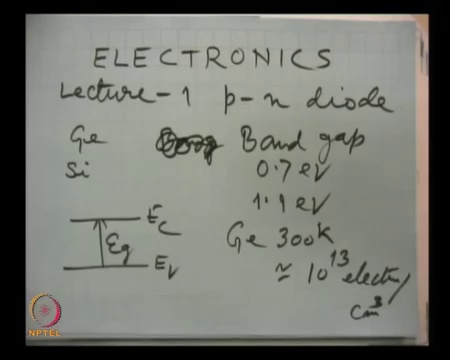 ELECTRONICS
Lecture - 1 p-n diode
Ge Band gap
Si 0.7 eV
1.1 eV
Ec
Eg
Ev
Ge 300K
≃ 10¹³ electrons/
cm³
NPTEL